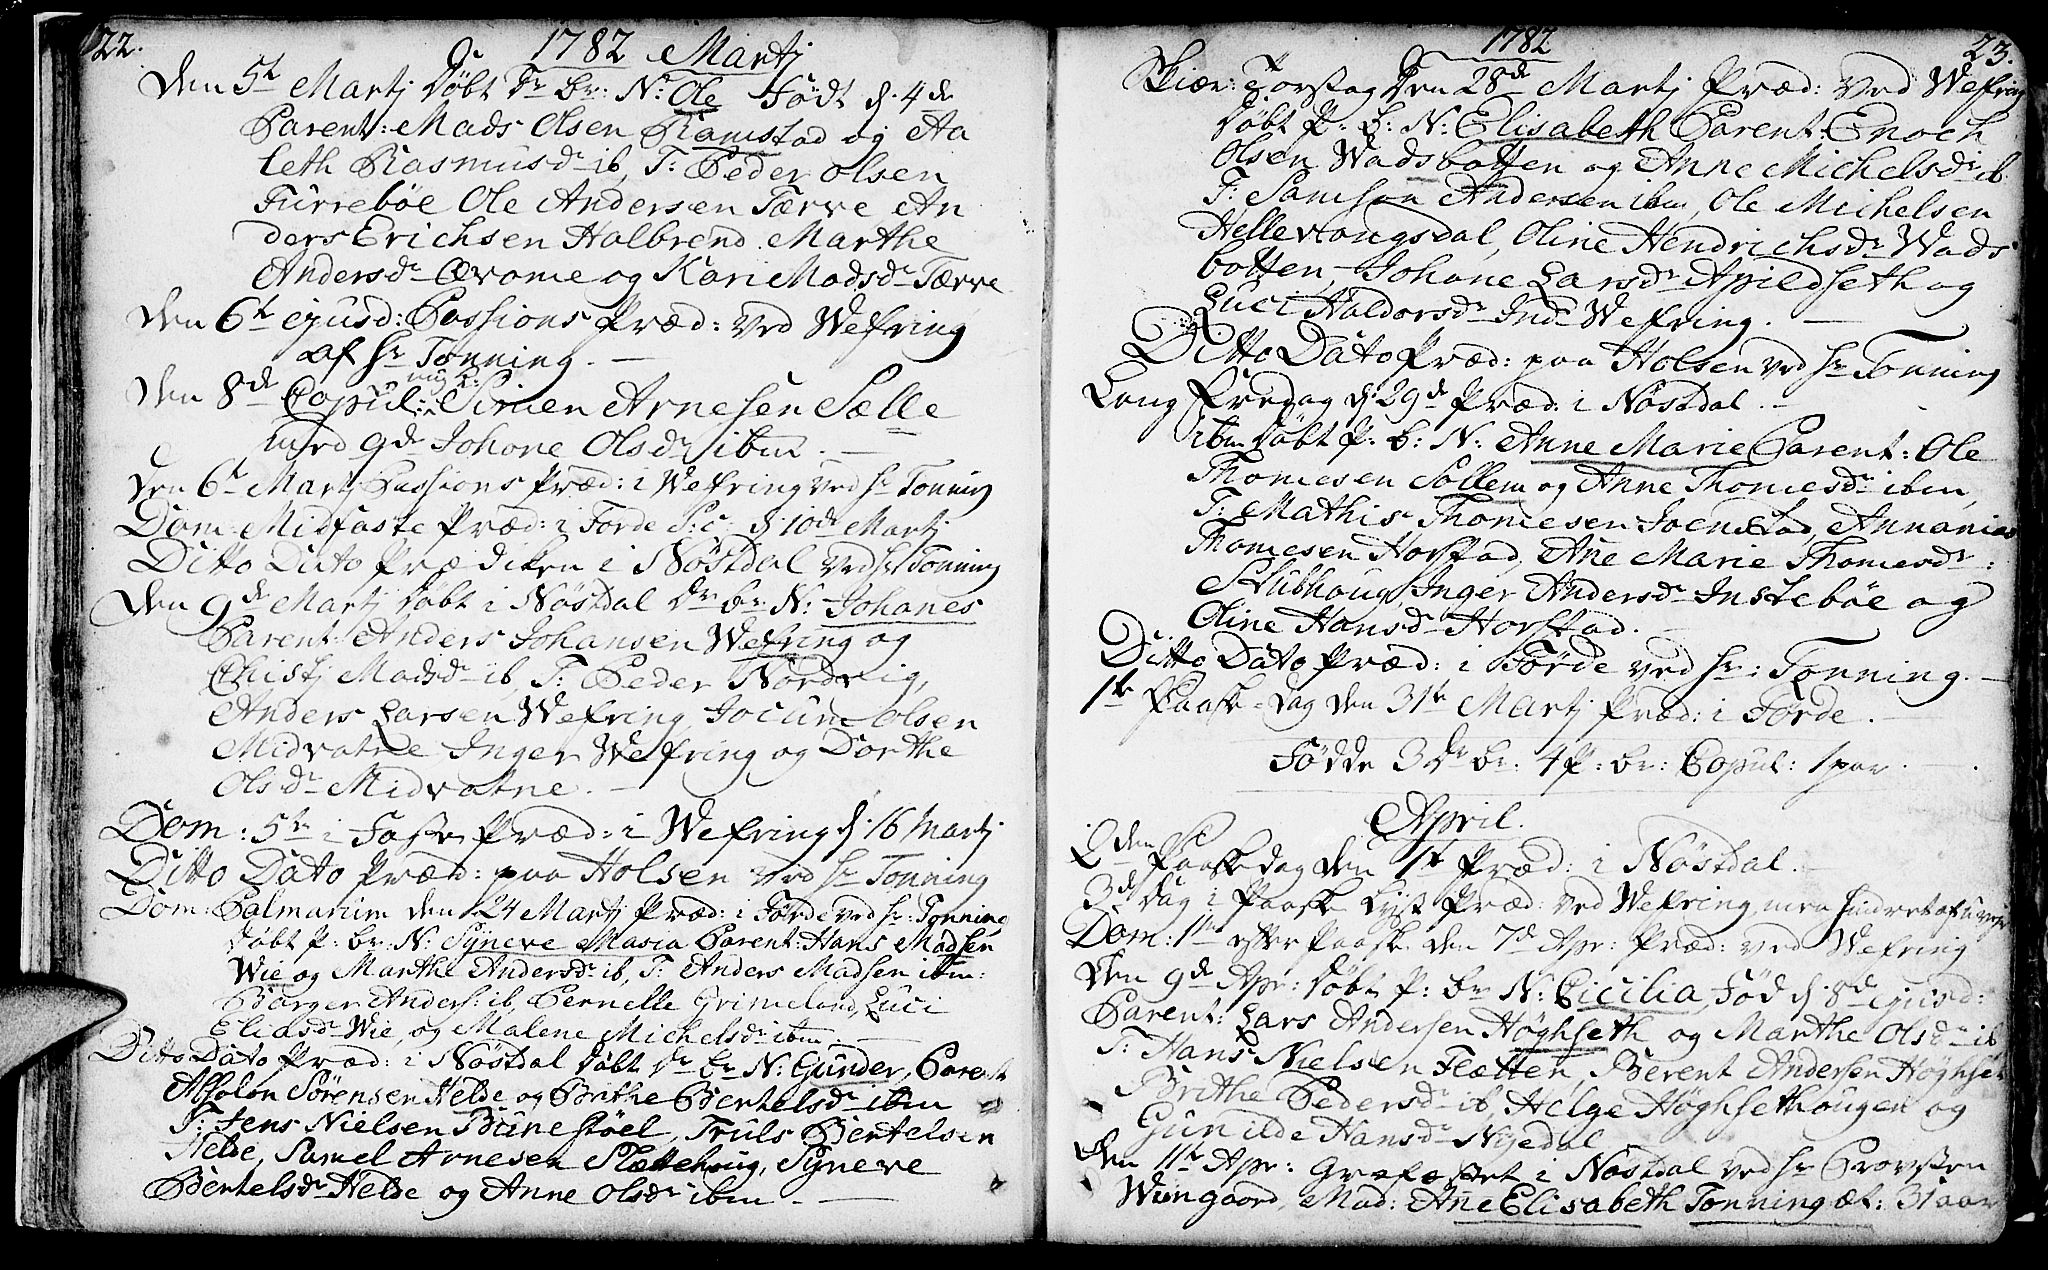 22.
1782 Martj
Den 5t Martj Døbt Dr. br: N: Ole Født d. 4de
Parent: Mads Olsen Ramstad og Aa
leth Rasmusdr ib, T: Peder Olsen
Furrebøe Ole Andersen Tærve An
ders Erichsen Halbrend. Marthe
Andersdr Ævome og Kari Madsdr Tærve
Den 6t ejusd: Passions Præd: ved Wefring
af Hr Tonning. —
Den 8de Copul: Simen Arnesen Sælle
med gde Johane Olsdr ibm. —
Den 6t Martj Passions Præd: i Wefring ved Hr Tonning
Dom: Midfaste Præd: i Førde S: c: d. 10de Martj
Ditto Dato Prædiken i Nøstdal ved Hr Tonning
Den 9de Martj Døbt i Nøstdal Dr br N: Johanes
Parent: Anders Johansen Wefring og
Christj Madsdr ib, T: Peder Nordvig,
Anders Larsen Wefring, Jocum Olsen
Midvatne Inger Wefring og Dorthe
Olsdr Midvatne. —
Dom: 5te i Faste Præd: i Wefring d. 16 Martj
Ditto Dato Præd: paa Holsen ved Hr Tonning
Dom: Palmarum den 24 Martj Præd: i Førde ved Hr: Tonning
Døbt P: br N: Syneve Maria Parent: Hans Madsen
Wie og Marthe Andersdr ib, T: Anders Madsen ibm:
Børger Anders: ib, Pernille Grimeland, Luci
Eliasdr Wie, og Malene Michelsdr ibm. —
Ditto Dato Præd: i Nøstdal Døbt Dr br N: Gunder, Parent
Absolon Sørensen Helde og Brithe Bertelsdr ibm
T: Jens Nielsen Bunestøel, Truls Bertelsen
Helde, Samel Arnesen Slættehoug, Syneve
Bertelsdr Helde og Anne Olsdr ibm —
1782
23.
Skiær: Torstag Den 28de Martj Præd: ved Wefring
Døbt P: B: N: Elisabeth Parent: Enoch
Olsen Wadsbotten og Anne Michelsdr ib
T: Samson Andersen ibm, Ole Michelsen
Hellevangsdal, Oline Hendrichsdr Wads
botten, Johane Larsdr Apildseth og
Luci Haldorsdr Ind Wefring. —
Ditto Dato Præd: paa Holsen ved Hr Tonning
Lang Fredag d. 29de Præd: i Nøstdal. —
ibm Døbt P: b: N: Anne Marie Parent: Ole
Thomesen Sollem og Anne Thomesdr ibm,
T: Mathis Thomesen Joenstad, Annanias
Thomesen Horstad, Ane Marie Thomesdr:
Stubhoug, Inger Andersdr Instebøe og
Oline Hansdr Horstad.
Ditto Dato Præd: i Førde ved Hr: Tonning. —
1te Paaske-Dag den 31te Martj Præd: i Førde. —
Fødde 3 Dr br: 4 P: br: Copul: 1 par. —
April.
2den Paaskedag den 1te Præd: i Nøstdal. —
3de Dag i Paaske Præd: ved Wefring, men hindret af uveir
Dom: 1te efter Paaske den 7de Apr: Præd: ved Wefring
Den 9de Apr: Døbt P: br N: Cicilia, Fød d. 8de ejusd:
Parent: Lars Andersen Høghseth og Marthe Olsdr ib
T: Hans Nielsen Flætten, Berent Andersen Høghset
Brithe Pedersdr ib, Helge Høghsethougen og
Gunilde Hansdr Nijedal
Den 11te Apr: Græfæstet i Nøstdal ved Hr Provsten
Wiingaard, Mad: Ane Elisabeth Tonning æt: 31 aar